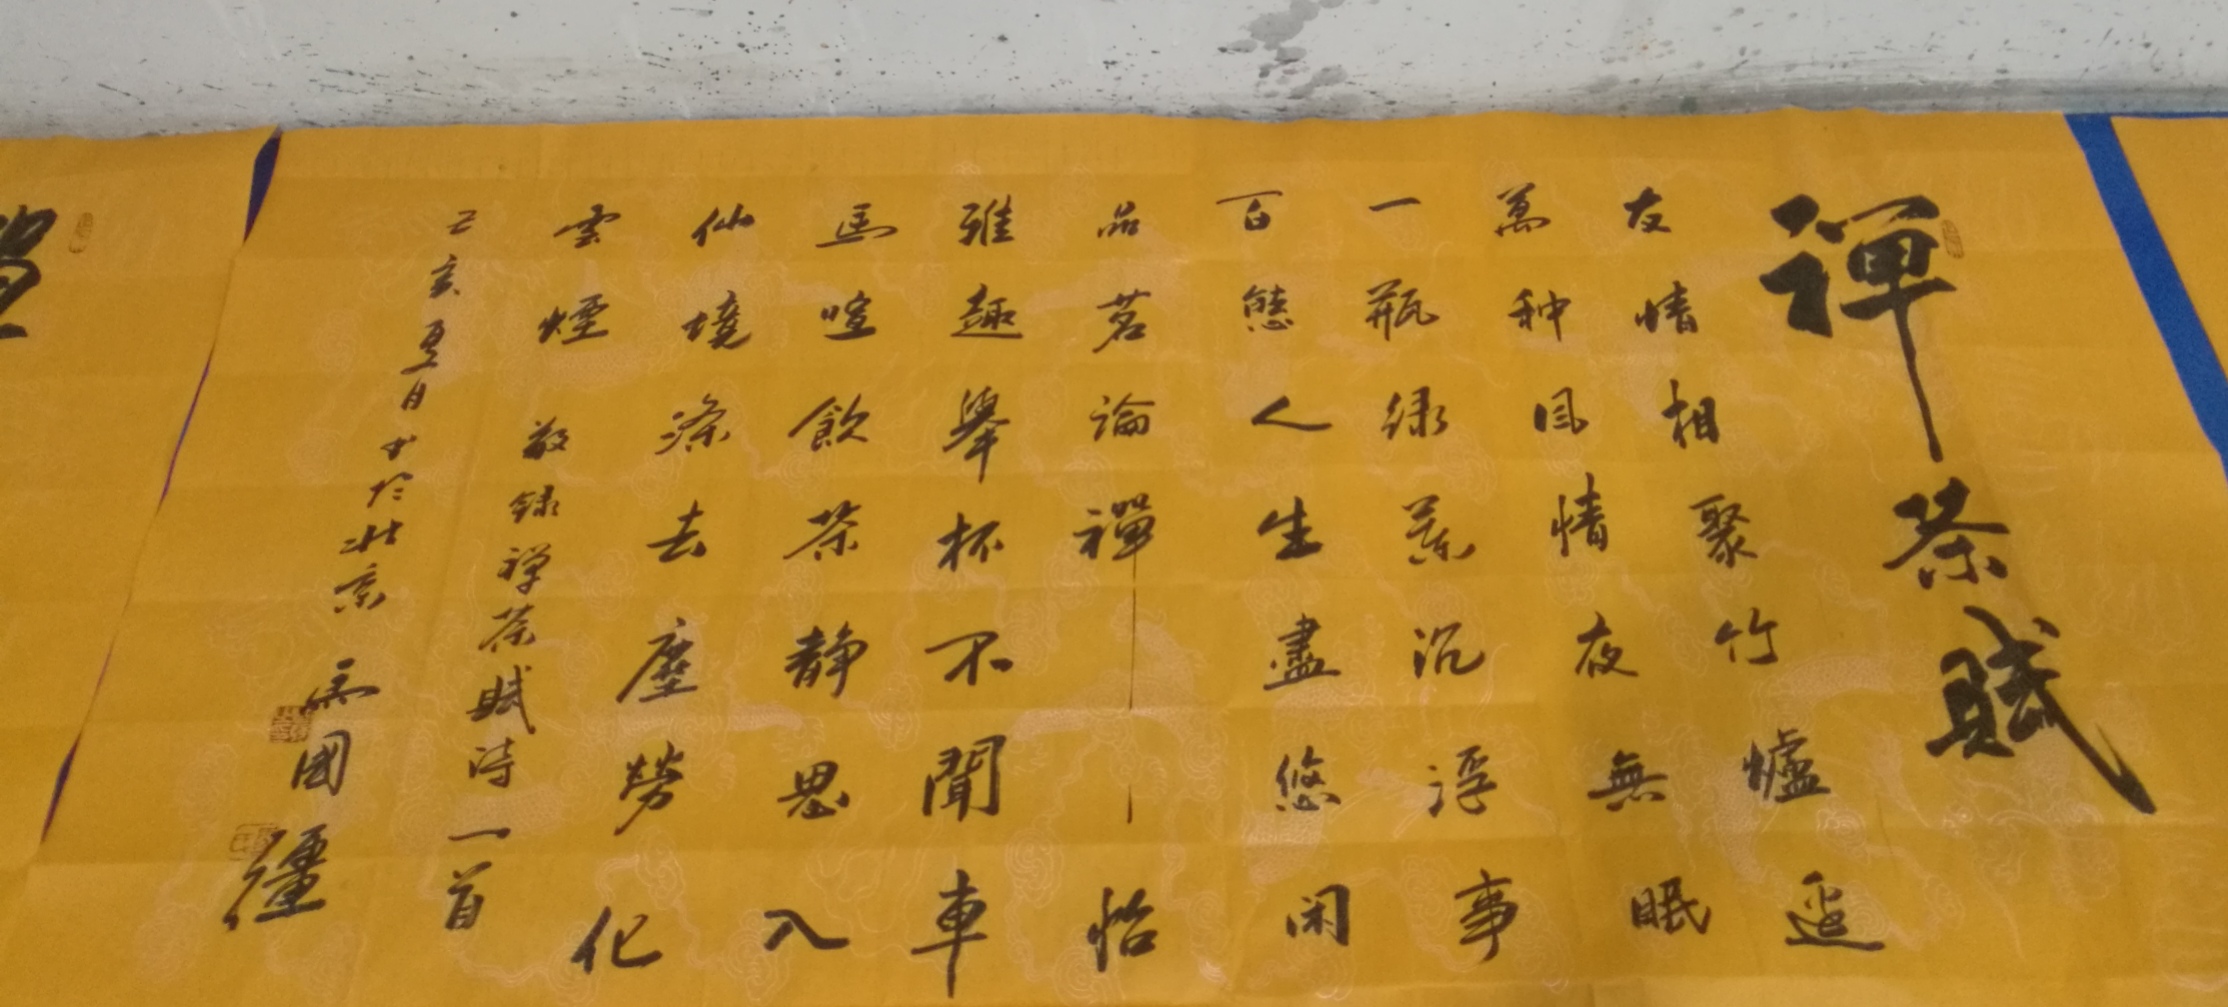 禅茶賦
友情相聚竹爐邊
萬种风情夜無眠
一瓶绿葉沉浮事
百態人生盡悠闲
品茗論禪怡
雅趣舉杯不聞車
馬喧飲茶静思入
仙境滌去塵勞化
雲煙 敬録禅茶賦诗一首
己亥夏日书於北京 馬國疆